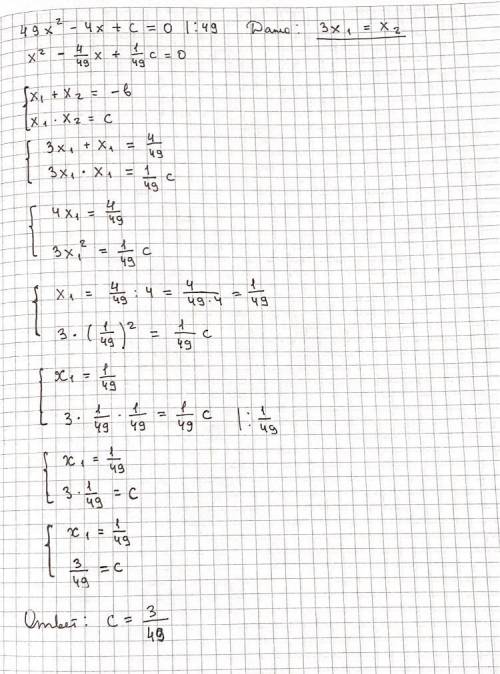 49x² - 4x + c = 0 |:49 Дано: 3x₁ = x₂
x² - 4/49 x + 1/49 c = 0
{ x₁ + x₂ = -b
x₁ · x₂ = c
{ 3x₁ + x₁ = 4/49
3x₁ · x₁ = 1/49 c
{ 4x₁ = 4/49
3x₁² = 1/49 c
{ x₁ = 4/49 : 4 = 4/49·4 = 1/49
3 · (1/49)² = 1/49 c
{ x₁ = 1/49
3 · 1/49 · 1/49 = 1/49 c |: 1/49
{ x₁ = 1/49
3 · 1/49 = c
{ x₁ = 1/49
3/49 = c
Ответ: c = 3/49